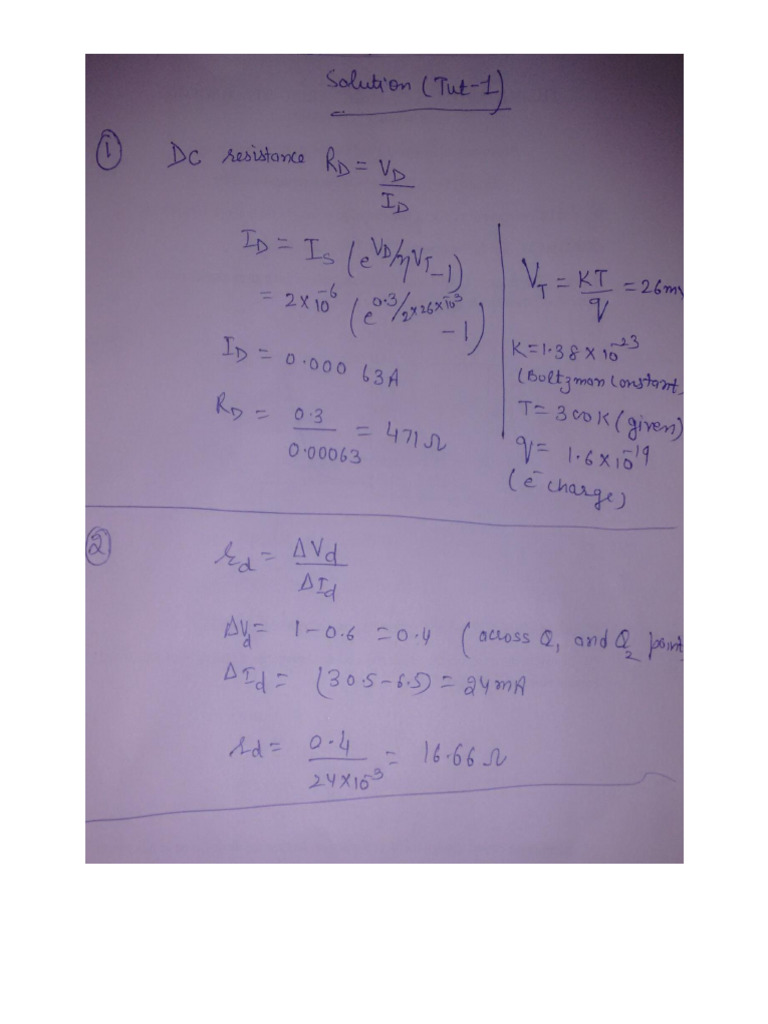 Solution (Tut-1)
① DC resistance R_D = V_D / I_D
I_D = I_S (e^{V_D/ηV_T} - 1)
= 2×10^{-6} (e^{0.3/2×26×10^{-3}} - 1)
I_D = 0.00063A
R_D = 0.3 / 0.00063 = 471Ω
V_T = KT / q = 26mV
K = 1.38×10^{-23}
(Boltzman Constant)
T = 300K (given)
q = 1.6×10^{-19}
(e^- charge)
② r_d = ΔV_d / ΔI_d
ΔV_d = 1-0.6 = 0.4 (across Q_1 and Q_2 point
ΔI_d = (30.5-6.5) = 24mA
r_d = 0.4 / 24×10^{-3} = 16.66Ω